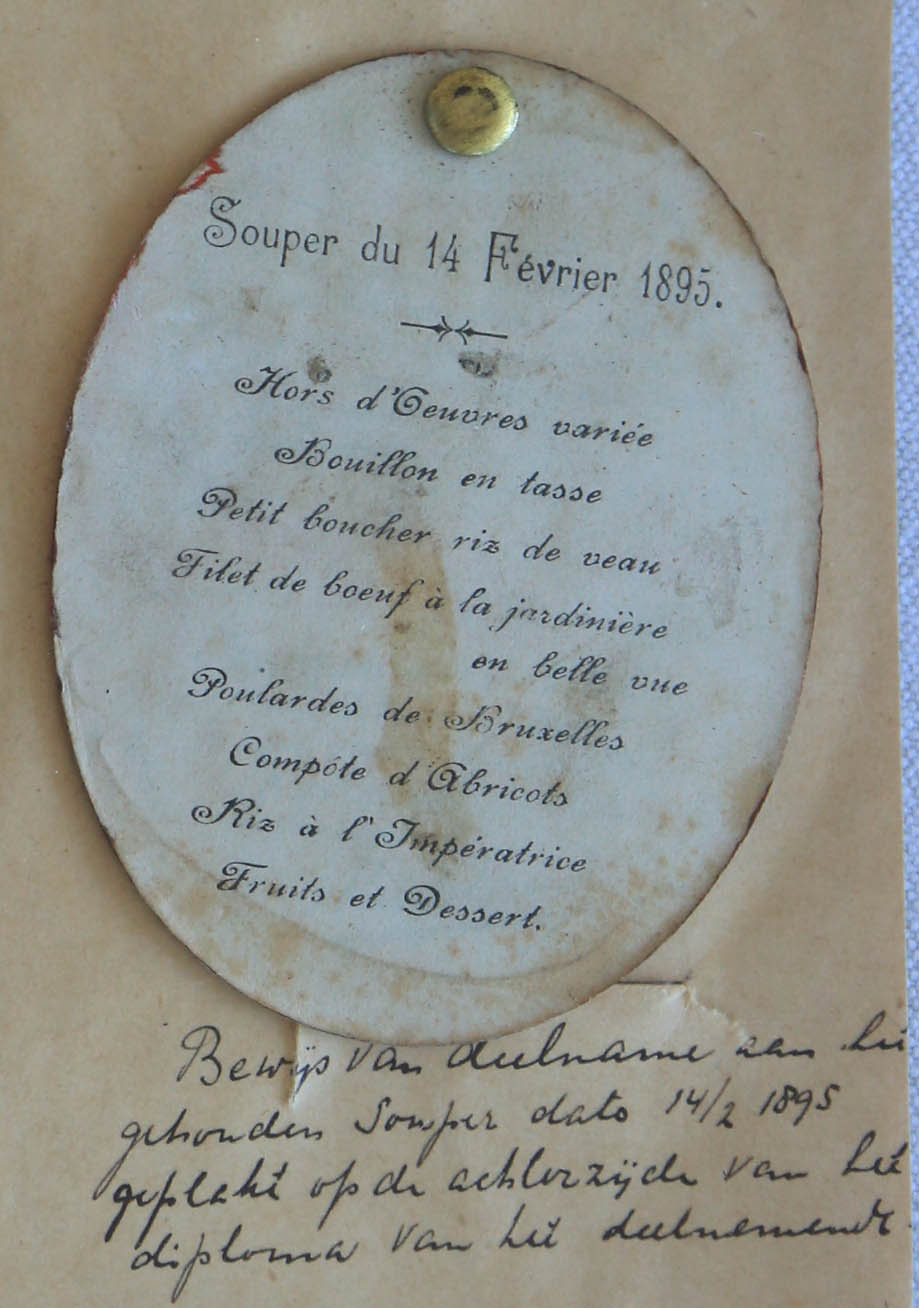 Souper du 14 Février 1895.
Hors d'Oeuvres variée
Bouillon en tasse
Petit boucher riz de veau
Filet de boeuf à la jardinière
en belle vue
Poulardes de Bruxelles
Compôte d'Abricots
Riz à l'Impératrice
Fruits et Dessert.
Bewijs van deelname aan het
gehouden Souper dato 14/2 1895
geplakt op de achterzijde van het
diploma van het deelnemende